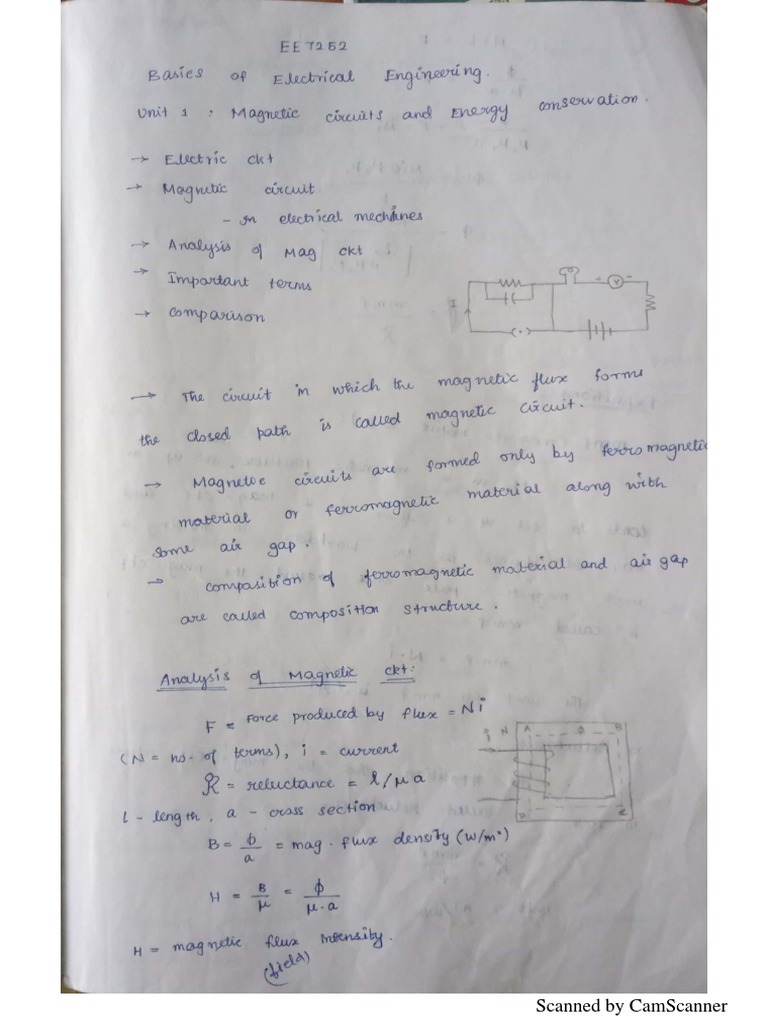 EE7252
Basics of Electrical Engineering.
Unit 1 : Magnetic circuits and Energy conservation.
→ Electric ckt
→ Magnetic circuit
- In electrical mechines
→ Analysis of Mag ckt
→ Important terms
→ comparison
I + V -
→ The circuit in which the magnetic flux forms
the closed path is called magnetic circuit.
→ Magnetic circuits are formed only by ferromagnetic
material or ferromagnetic material along with
some air gap.
→ composition of ferromagnetic material and air gap
are called composition structure.
Analysis of Magnetic ckt:
F = Force produced by flux = Ni
(N = no. of terms), i = current
ℛ = reluctance = l/μa
l - length, a - cross section
i N A B
D C
B = ϕ/a = mag. flux density (w/m²)
H = B/μ = ϕ/μ.a
H = magnetic flux Intensity.
(field)
Scanned by CamScanner